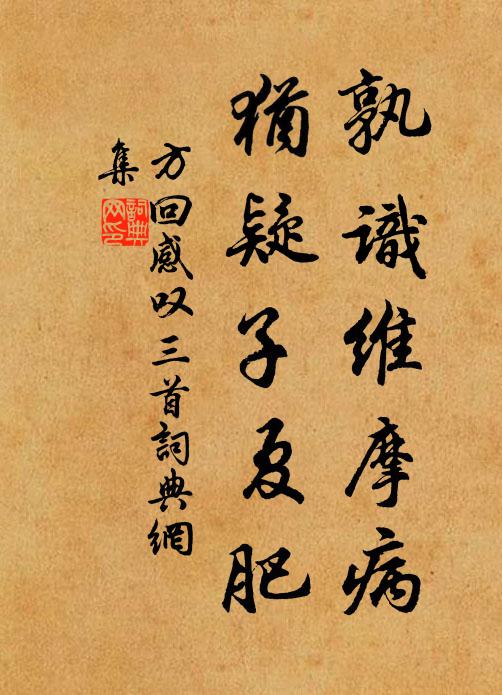 孰識維摩病
猶疑子夏肥
方回感叹三首詞典網
集
詞典
网印